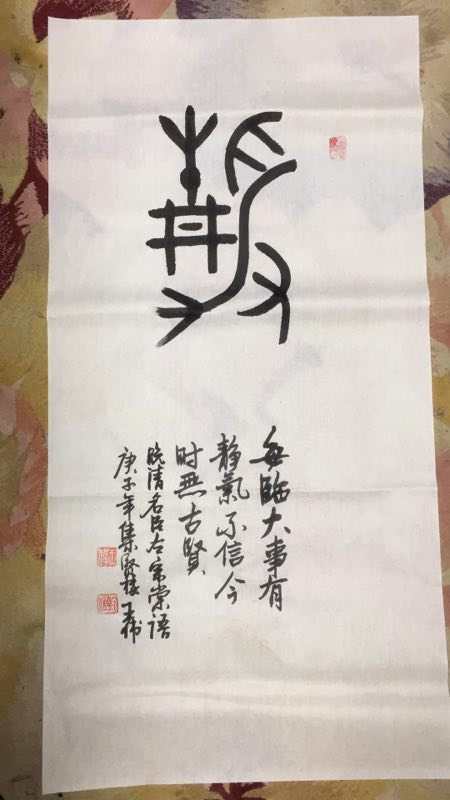 靜
每臨大事有
静氣不信今
时無古賢
晚清名臣左宗棠語
庚子年集賢楼王